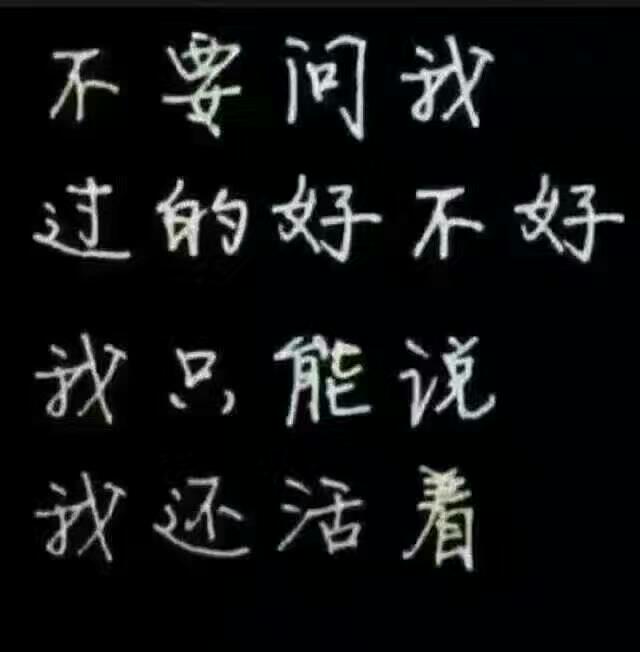 不要问我
过的好不好
我只能说
我还活着